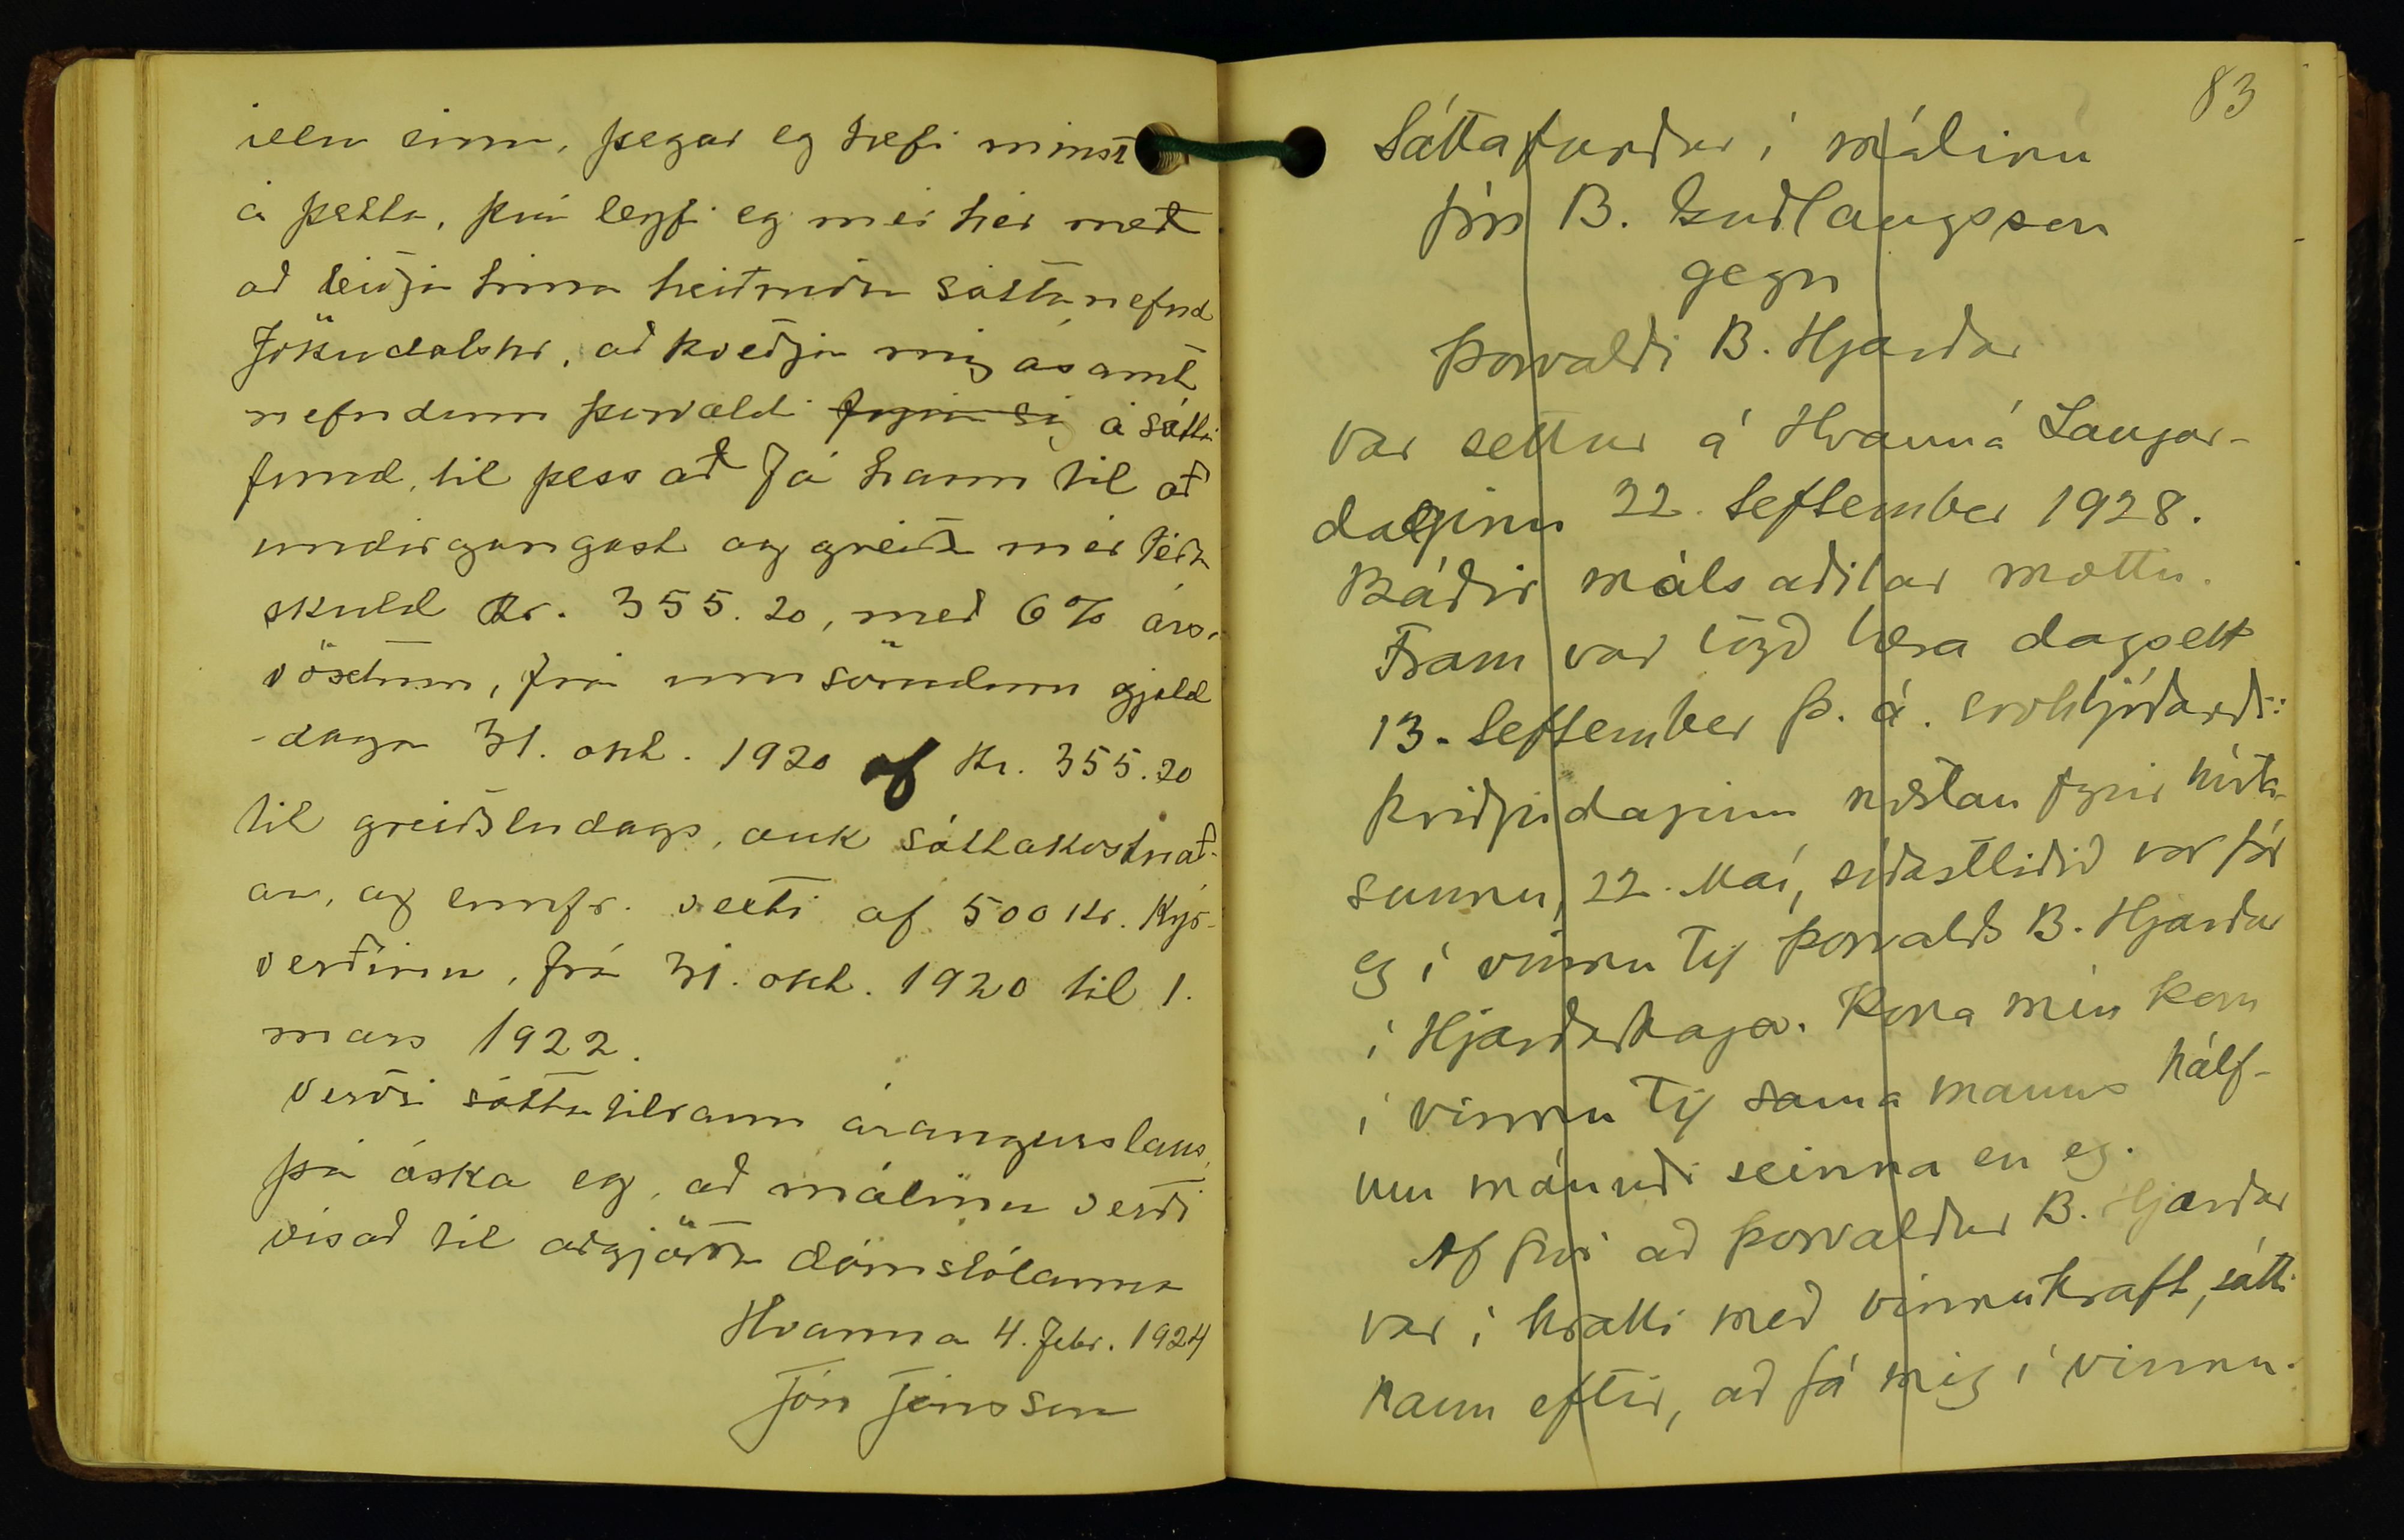 illu einu, þegar eg hefi minst
á þetta, þá leyfi eg mér hér með
að beiðja hina heiðruðu sáttanefnd
Jökuldalshr, að kveðja mig ásamt
nefndum Þorvaldi fyrir sig á sátta
fund, til þess að fá hann til að
undirgangast og greiða mér téða
skuld Kr. 355.20, með 6% árs-
vöxtum, frá umsömdum gjald
-daga 31. okt. 1920 af Kr. 355.20
til greiðsludags, auk sáttakostnað-
ar, og ennfr. vexti af 500 Kr. Kýr-
verðinu, frá 31. okt. 1920 til 1.
mars 1922.
Verði sáttatilraun árangurslaus,
þá óska eg, að málinu verði
vísað til aðgjörða dómstólanna
Hvanná 4. febr. 1924
Jón Jónsson
83
Sáttafundur í málinu
Jón B. Guðlaugsson
gegn
Þorvaldi B. Hjarðar
var settur á Hvanná Laugar-
daginn 22. September 1928.
Báðir málsaðilar mættu.
Fram var lögð kæra dagsett
13. September þ. á. svohljóðandi:
Þriðjudaginn næstan fyrir hvíta-
sunnu, 22. Maí, síðastliðið vor fór
eg í vinnu til Þorvalds B. Hjarðar
í Hjarðarhaga. Kona mín kom
í vinnu til sama manns hálf-
um mánuði seinna en eg.
Af því að Þorvaldur B. Hjarðar
var í hraki með vinnukraft, sótti
hann eftir, að fá mig í vinnu.